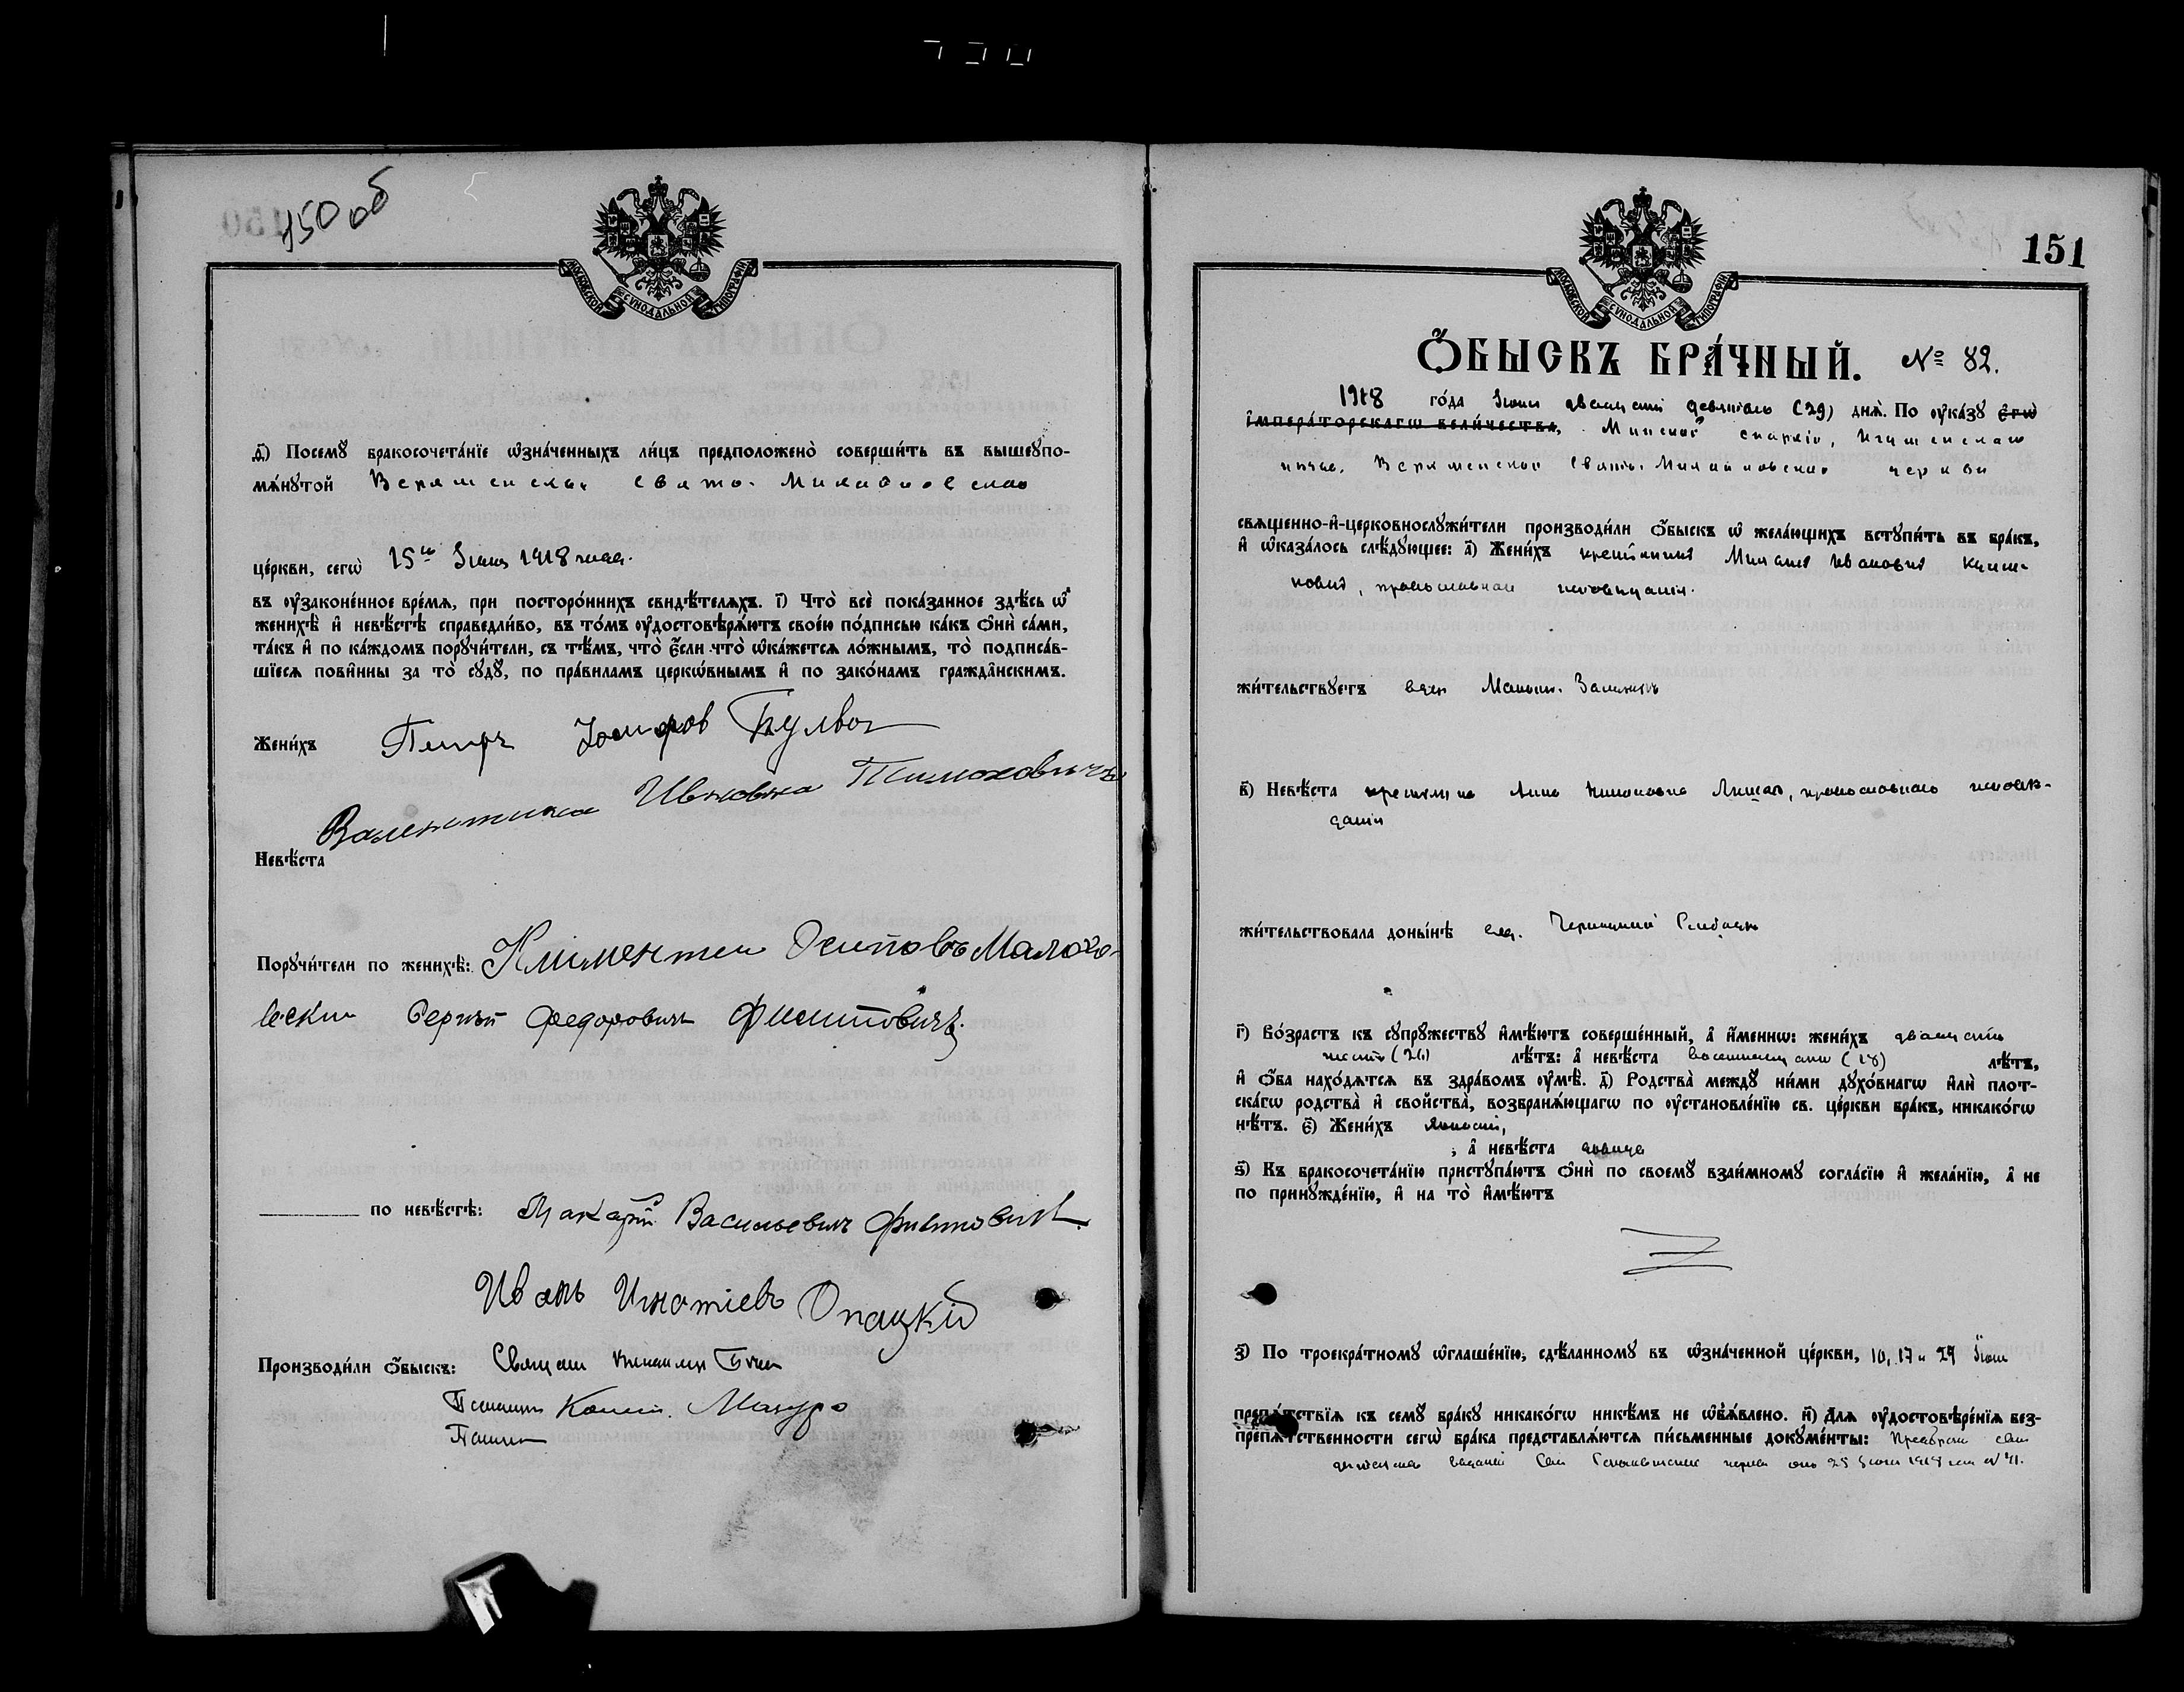 150 об
МОСКОВСКОЙ СѴНОДАЛЬНОЙ ТИПОГРАФІИ
д҃) Посемꙋ̀ бракосочета́нїе ѡ҆зна́ченныхъ ли́цъ предположено̀ соверши́ть въ вышеꙋпо-
мѧ́нꙋтой Веряменской Свято-Михайловской
це́ркви, сегѡ̀ 15го Iюня 1918 года.
въ ᲂу҆зако́ненное вре́мѧ, при посторо́ннихъ свидѣ́телѧхъ. і҃) Что̀ всѐ пока́занное здѣ́сь ѡ҆
женихѣ̀ и҆ невѣ́стѣ справедли́во, въ то́мъ ᲂу҆достовѣрѧ́ютъ свое́ю по́дписью ка́къ ѻ҆нѝ са́ми,
та́къ и҆ по ка́ждомъ порꙋчи́тели, съ тѣ́мъ, что̀ є҆́сли что̀ ѡ҆ка́жетсѧ ло́жнымъ, то̀ подписа́в-
шїесѧ пови́нны за то̀ сꙋдꙋ̀, по пра́виламъ церкѡ́внымъ и҆ по зако́намъ гражда́нскимъ.
Жени́хъ Петръ Iосифов Булва
Валентина Ивновна Тимоховичъ
Невѣ́ста
Порꙋчи́тели по женихѣ̀: Климентеи Осиповъ Малахо-
вски Сергѣй Федоровичъ Филиповичъ.
по невѣ́стѣ: Макарій Васильевичъ Филиповичъ.
Иванъ Игнатіевъ Опацкій
Производи́ли ѻ҆́быскъ: Священ
Псаломщ Конст. Мазуро
151
МОСКОВСКОЙ СѴНОДАЛЬНОЙ ТИПОГРАФІИ
Ѻ҆́БЫСКЪ БРА́ЧНЫЙ. № 82.
1918 го́да Iюня двадцать девятаго (29) днѧ̀. По ᲂу҆ка́зꙋ є҆гѡ̀
і҆мпера́торскагѡ вели́чества, Минской епархіи, Игуменскаго
уѣзда, Веряменской Свято-Михайловской церкви
свѧще́нно-и҆-церковнослꙋжи́тели производи́ли ѻ҆́быскъ ѡ҆ жела́ющихъ встꙋпи́ть въ бра́къ,
и҆ ѡ҆каза́лось слѣ́дꙋющее: а҃) Жени́хъ крестьянинъ Михаилъ Ивановъ Клим-
ковичъ, православнаго исповѣданія.
жи́тельствꙋетъ
в҃) Невѣ́ста крестьянка Анна православнаго исповѣ-
данія
жи́тельствовала доны́нѣ
г҃) Во́зрастъ къ сꙋпрꙋ́жествꙋ и҆мѣ́ютъ соверше́нный, а҆ и҆́меннѡ: жени́хъ двадцати
шести (26) лѣ́тъ: а҆ невѣ́ста восемнадцати (18) лѣ́тъ,
и҆ ѻ҆́ба нахо́дѧтсѧ въ здра́вомъ ᲂу҆мѣ̀. д҃) Родства̀ междꙋ̀ ни́ми дꙋхо́внагѡ и҆лѝ плот-
ска́гѡ родства̀ и҆ сво́йства, возбранѧ́ющагѡ по ᲂу҆становле́нїю св. це́ркви бра́къ, никако́гѡ
нѣ́тъ. є҃) Жени́хъ холостъ,
; а҆ невѣ́ста дѣвица
ѕ҃) Къ бракосочета́нїю пристꙋпа́ютъ ѻ҆нѝ по своемꙋ̀ взаи́мномꙋ согла́сїю и҆ жела́нїю, а҆ не
по принꙋжде́нїю, и҆ на то̀ и҆мѣ́ютъ
з҃) По троекра́тномꙋ ѡ҆глаше́нїю, сдѣ́ланномꙋ въ ѡ҆зна́ченной це́ркви, 10, 17 и 29 Iюня
препѧ́тствїѧ къ семꙋ̀ бра́кꙋ никако́гѡ никѣ́мъ не ѡ҆б̾ѧ́влено. и҃) Длѧ ᲂу҆достовѣре́нїѧ без-
препѧ́тственности сегѡ̀ бра́ка представлѧ́ютсѧ пи́сьменные докꙋме́нты: Предбрач свид
церкви отъ 25 Iюня 1918 года № 41.